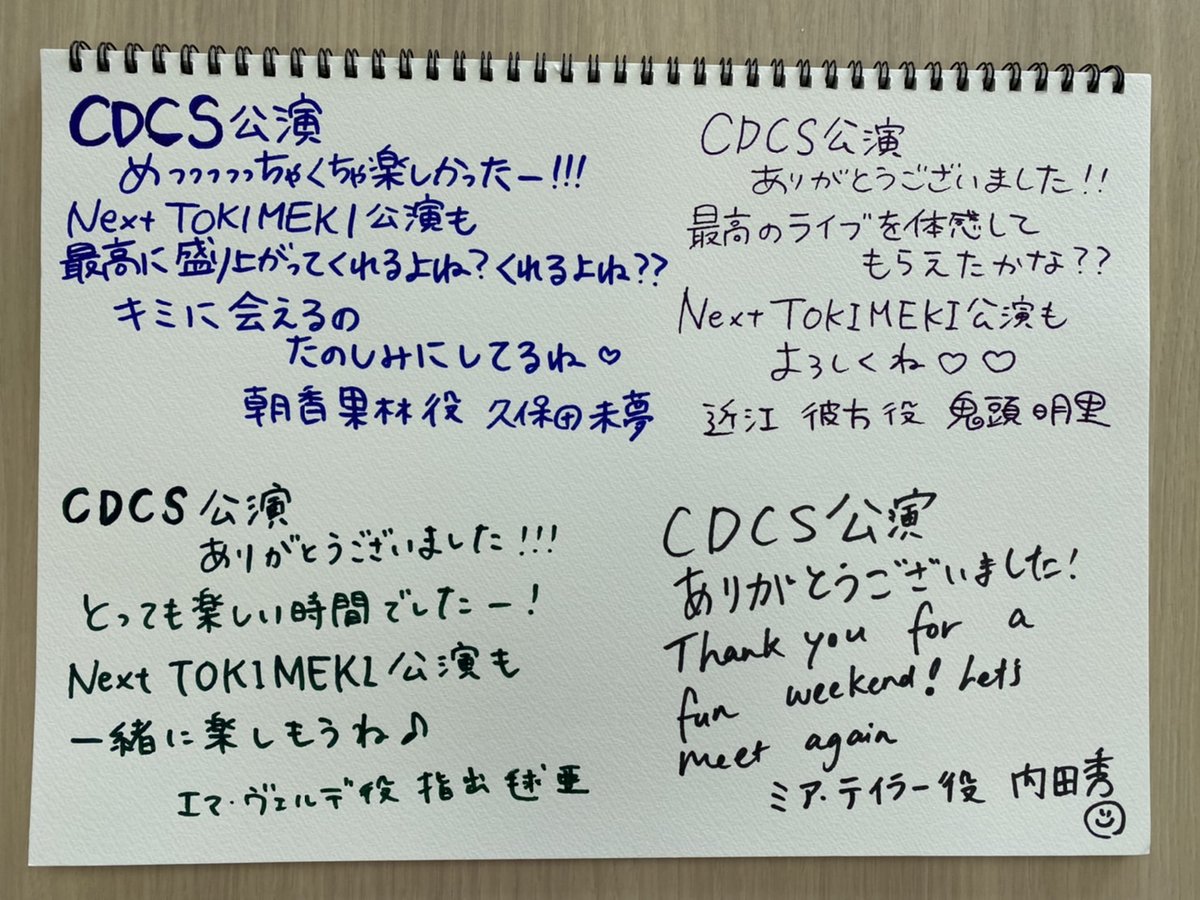 CDCS公演
めっっっっっちゃくちゃ楽しかったー!!!
Next TOKIMEKI公演も
最高に盛り上がってくれるよね?くれるよね??
キミに会えるの
たのしみにしてるね♡
朝香果林役 久保田未夢
CDCS公演
ありがとうございました!!
最高のライブを体感して
もらえたかな??
Next TOKIMEKI公演も
よろしくね♡♡
近江 彼方役 鬼頭明里
CDCS公演
ありがとうございました!!!
とっても楽しい時間でしたー!
Next TOKIMEKI公演も
一緒に楽しもうね♪
エマ・ヴェルデ役 指出毬亜
CDCS公演
ありがとうございました!
Thank you for a
fun weekend! Let's
meet again
ミア・テイラー役 内田秀